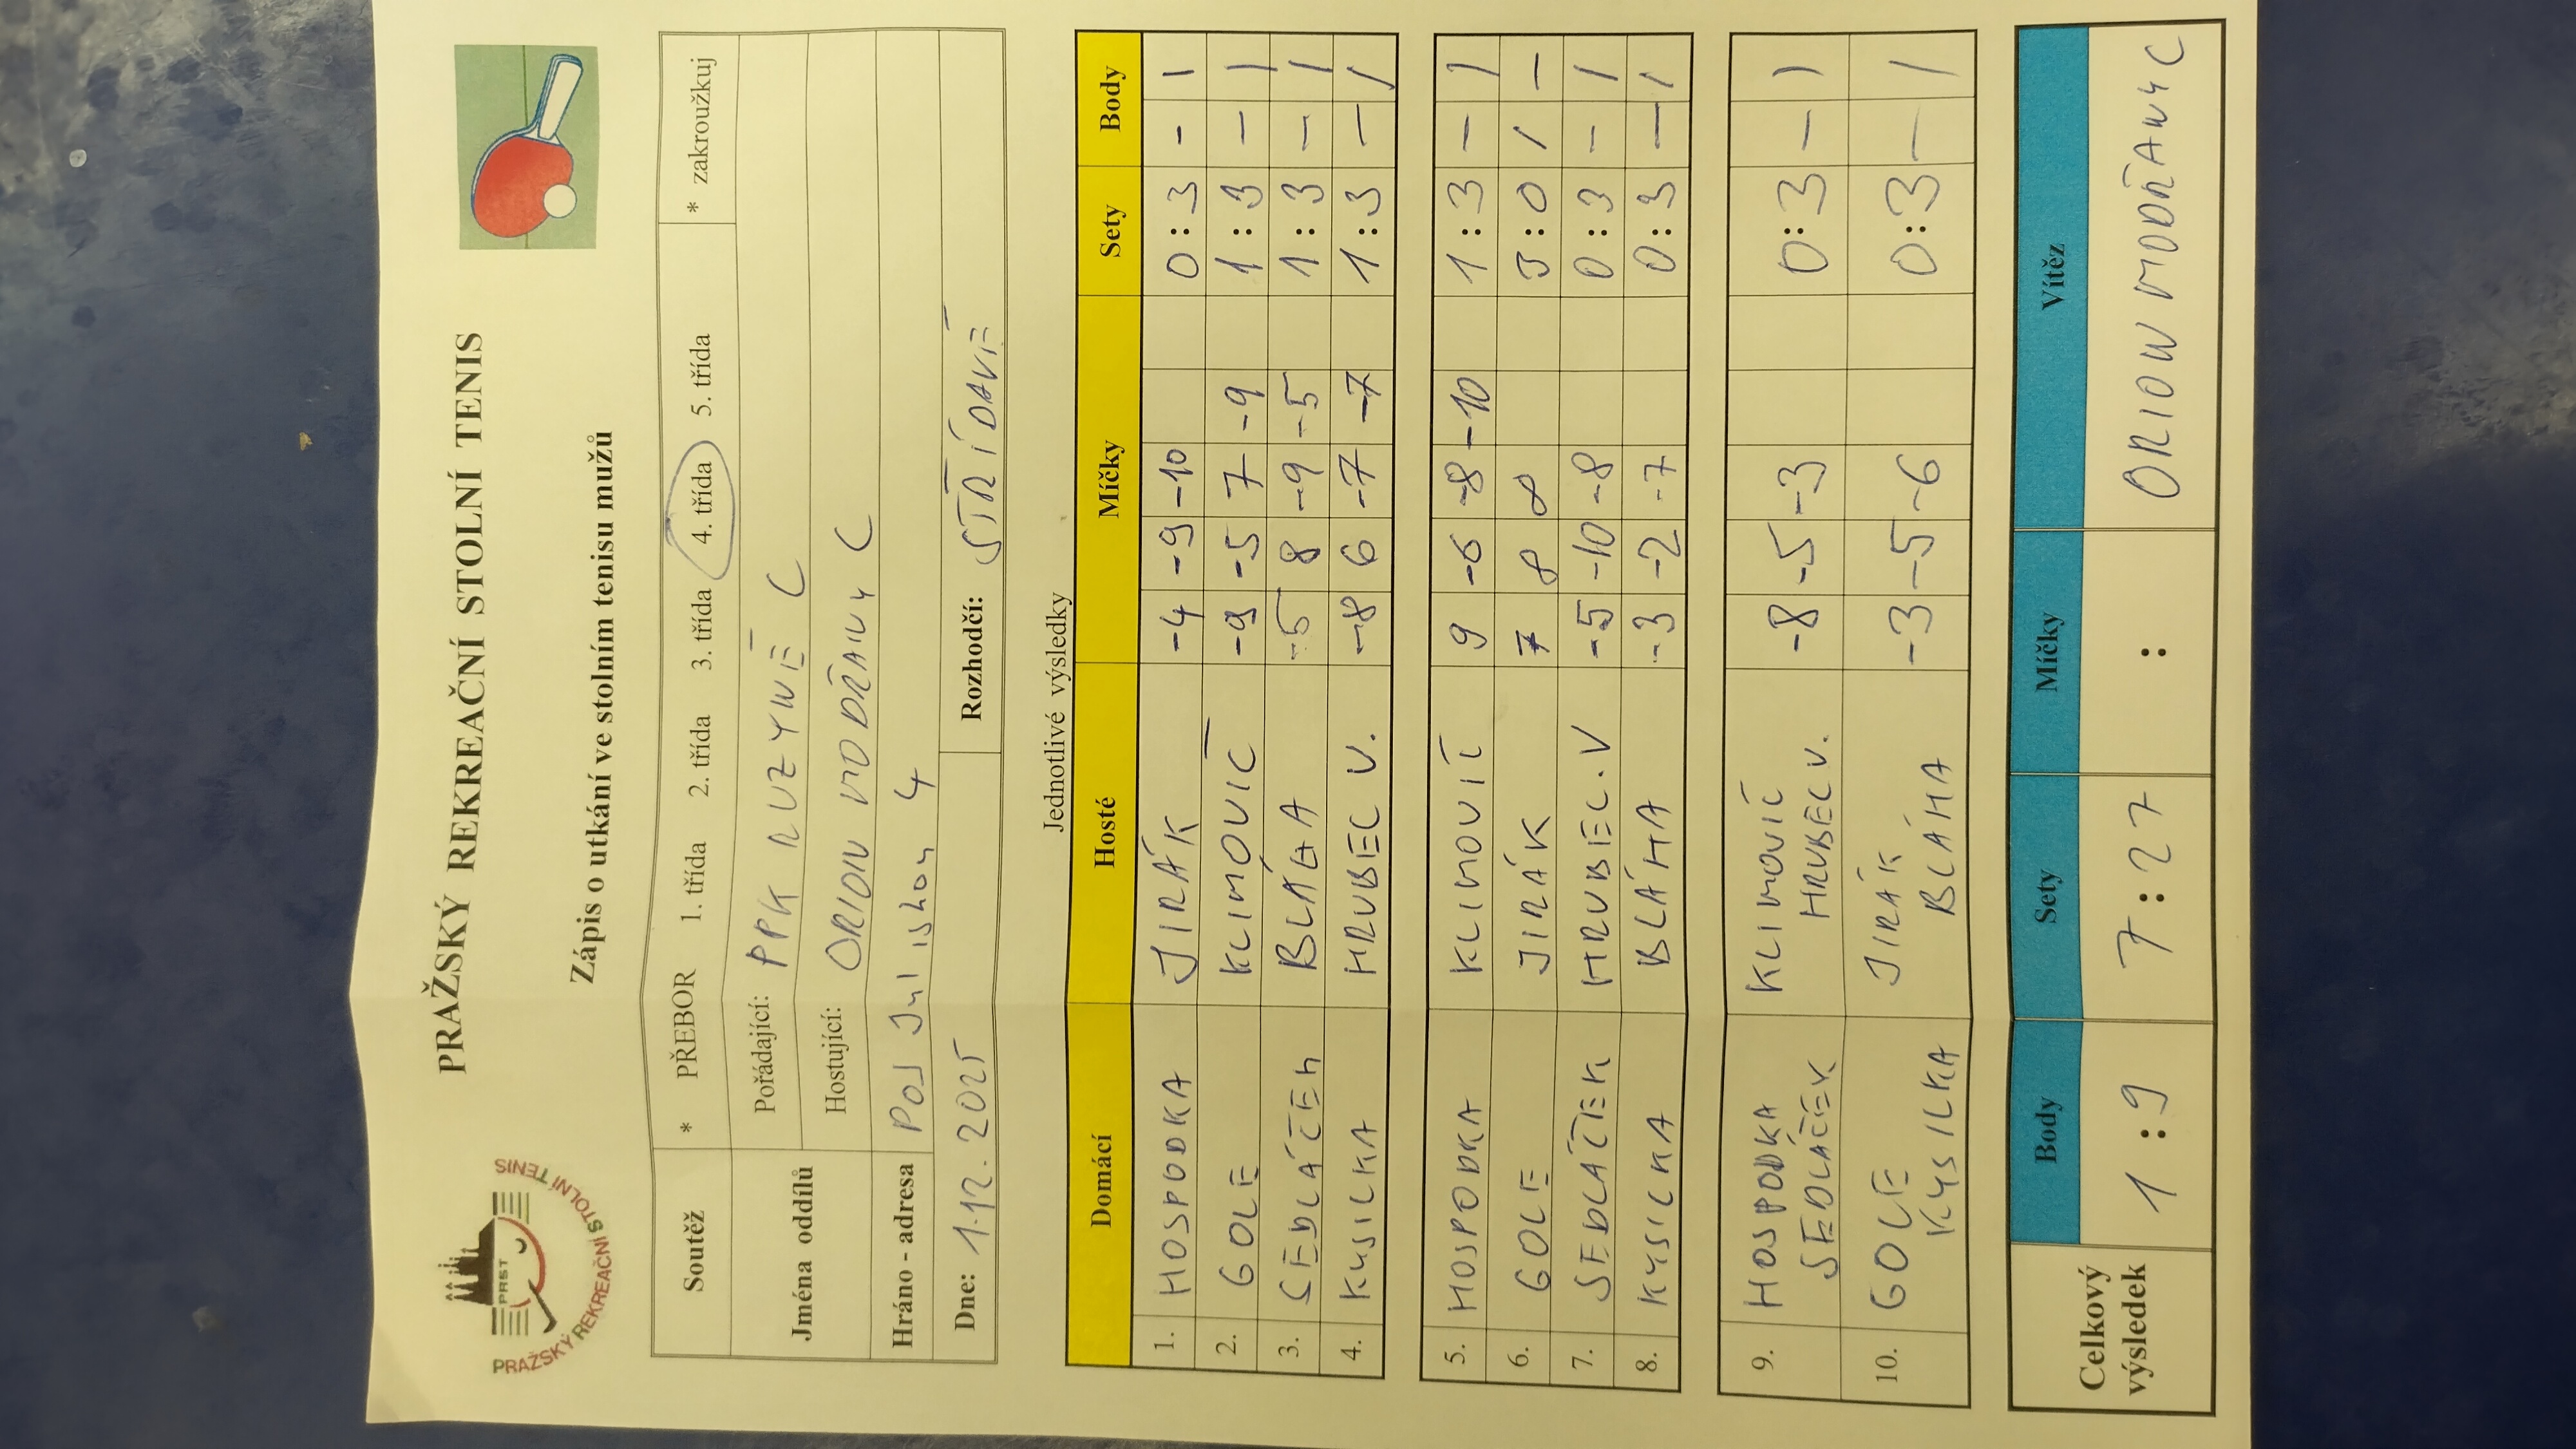 PRAŽSKÝ REKREAČNÍ STOLNÍ TENIS
PRST
PRAŽSKÝ REKREAČNÍ STOLNÍ TENIS
Zápis o utkání ve stolním tenisu mužů
Soutěž * PŘEBOR 1. třída 2. třída 3. třída 4. třída 5. třída * zakroužkuj
Jména oddílů
Pořádající: PPK RUZYNĚ C
Hostující: ORION MODŘANY C
Hráno - adresa POD 4
Dne: 1.12.2025 Rozhodčí: STŘÍDAVĚ
Jednotlivé výsledky
Domácí Hosté Míčky Sety Body
1. HOSPODKA JIRÁK -4 -9 -10 0:3 - 1
2. GOLE KLIMOVIČ -9 -5 7 -9 1:3 - 1
3. SEDLÁČEK BLÁHA -5 8 -9 -5 1:3 - 1
4. KYSILKA HRUBEC V. -8 6 -7 -7 1:3 - 1
5. HOSPODKA KLIMOVIČ 9 -6 -8 -10 1:3 - 1
6. GOLE JIRÁK 7 8 8 3:0 1 -
7. SEDLÁČEK HRUBEC.V -5 -10 -8 0:3 - 1
8. KYSILKA BLÁHA -3 -2 -7 0:3 - 1
9. HOSPODKA KLIMOVIČ -8 -5 -3 0:3 - 1
SEDLÁČEK HRUBEC V.
10. GOLE JIRÁK -3 -5 -6 0:3 - 1
KYSILKA BLÁHA
Celkový výsledek
Body Sety Míčky Vítěz
1:9 7:27 : ORION MODŘANY C